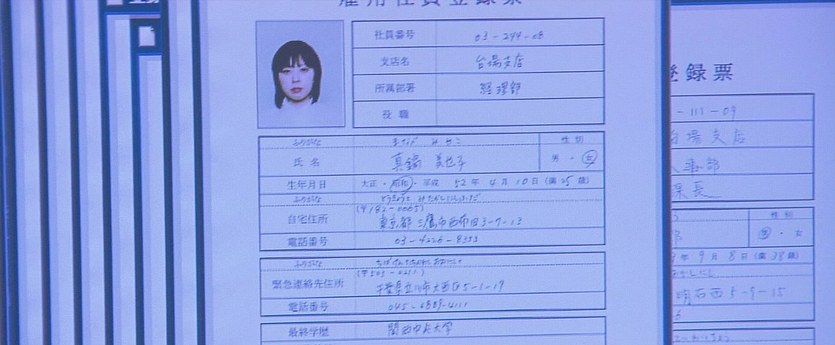 雇用社員登録票
社員番号 03-244-08
支店名 台場支店
所属部署 経理部
役職
ふりがな まなべ みやこ
氏名 真鍋 美也子
性別
男・女
生年月日 大正・昭和・平成 52年4月10日(満25歳)
ふりがな
自宅住所
東京都三鷹市西布田3-7-13
電話番号 03-4226-8353
ふりがな
緊急連絡先住所
5-1-19
電話番号 045-6889-4111
最終学歴 関西中央大学
登録票
-111-09
台場支店
人事部
課長
性別
男・女
年9月8日(満33歳)
明石西5-9-15